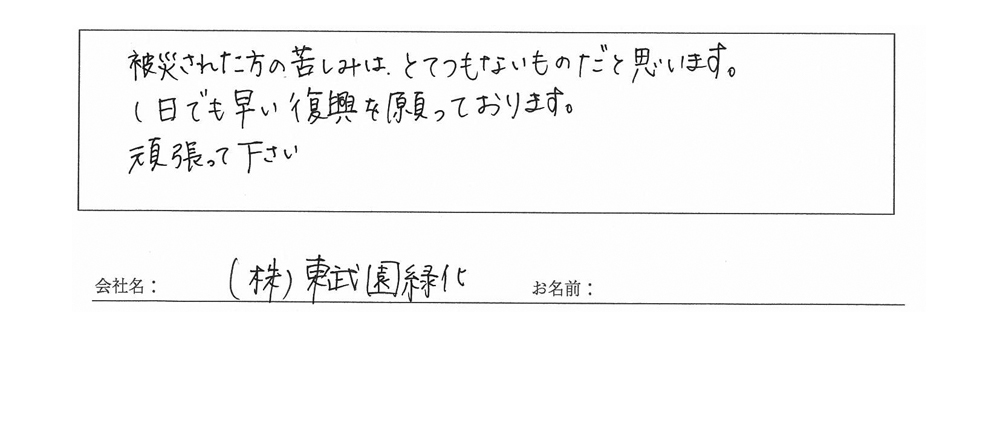 被災された方の苦しみは、とてつもないものだと思います。
1日でも早い復興を願っております。
頑張って下さい
会社名： (株)東武園緑化 お名前：